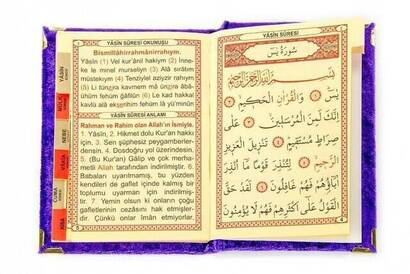 YÂSÎN SÛRESİ OKUNUŞU
Bismillâhirrahmânirrahıym.
Yâsîn (1) Vel kur'ânil hakiym (2) İnne-
ke le minel murseliyn (3) Alâ sırâtım
müstekıym (4) Tenziylel aziyzir rahıym
(5) Li tünzira kavmem mâ ünzira âbâ-
ühüm fehüm ğâfilûn (6) Le kad hakkal
kavlü alâ ekserihim fehüm lâ yü'minûn
YÂSÎN SÛRESİ ANLAMI
Rahman ve Rahim olan Allah'ın ismiyle.
1. Yâsîn, 2. Hikmet dolu Kur'an hakkı
için, 3. Sen şüphesiz peygamberler-
densin. 4. Dosdoğru yol üzerindesin.
5. (Bu Kur'an) Gâlip ve çok merha-
metli Allah tarafından indirilmiştir. 6.
Babaları uyarılmamış, bu yüzden
kendileri de gaflet içinde kalmış bir
toplumu uyarman için indirilmiş-
tir. 7. Yemin olsun ki onların çoğu
gafletlerinin cezâsını hak etmişler-
dir. Çünkü onlar îmân etmiyorlar.
YÂSÎN
MÜLK
NEBE
CUMA
سُورَةُ يٰسٓ
بِسْمِ اللّٰهِ الرَّحْمٰنِ الرَّحِيمِ
يٰسٓ ۝ وَالْقُرْاٰنِ الْحَكِيمِ ۝
اِنَّكَ لَمِنَ الْمُرْسَلِينَ ۝ عَلٰى
صِرَاطٍ مُسْتَقِيمٍ ۝ تَنْزِيلَ الْعَزِيزِ
الرَّحِيمِ ۝ لِتُنْذِرَ قَوْمًا مَٓا اُنْذِرَ
اٰبَٓاؤُهُمْ فَهُمْ غَافِلُونَ ۝ لَقَدْ حَقَّ
الْقَوْلُ عَلٰٓى اَكْثَرِهِمْ فَهُمْ لَا يُؤْمِنُونَ